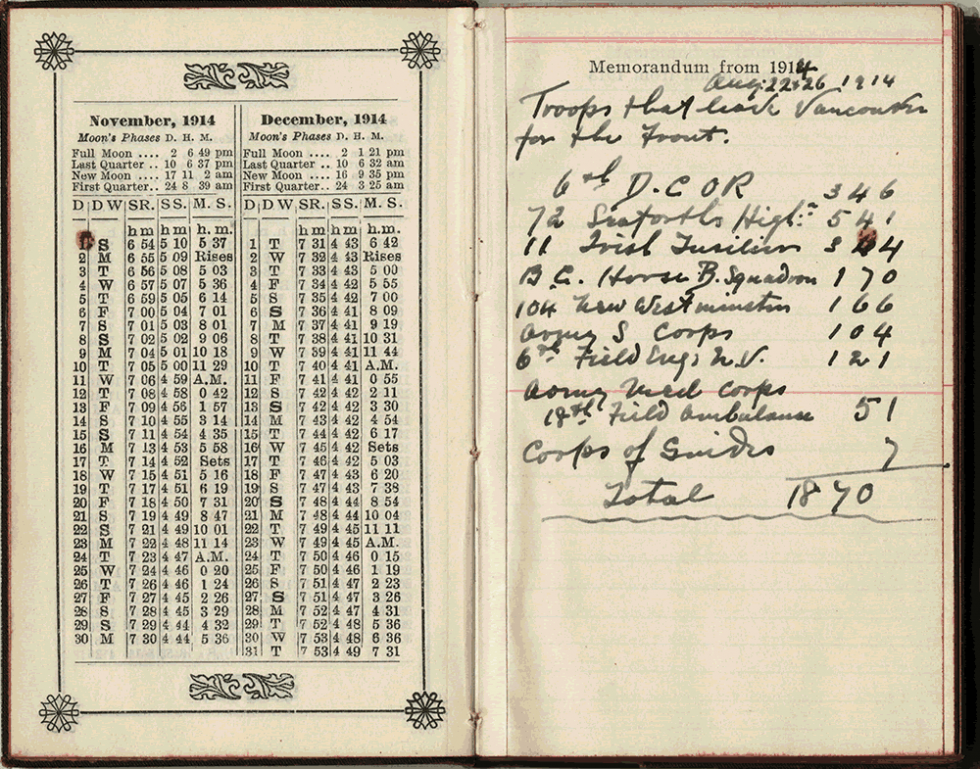 November, 1914
Moon's Phases D. H. M.
Full Moon .... 2 6 49 pm
Last Quarter .. 10 6 37 pm
New Moon .... 17 11 2 am
First Quarter.. 24 8 39 am
D D W SR. SS. M. S.
h m h m h. m.
1 S 6 54 5 10 5 37
2 M 6 55 5 09 Rises
3 T 6 56 5 08 5 03
4 W 6 57 5 07 5 36
5 T 6 59 5 05 6 14
6 F 7 00 5 04 7 01
7 S 7 01 5 03 8 01
8 S 7 02 5 02 9 06
9 M 7 04 5 01 10 18
10 T 7 05 5 00 11 29
11 W 7 06 4 59 A.M.
12 T 7 08 4 58 0 42
13 F 7 09 4 56 1 57
14 S 7 10 4 55 3 14
15 S 7 11 4 54 4 35
16 M 7 13 4 53 5 58
17 T 7 14 4 52 Sets
18 W 7 15 4 51 5 16
19 T 7 17 4 51 6 19
20 F 7 18 4 50 7 31
21 S 7 19 4 49 8 47
22 S 7 21 4 49 10 01
23 M 7 22 4 48 11 14
24 T 7 23 4 47 A.M.
25 W 7 24 4 46 0 20
26 T 7 26 4 46 1 24
27 F 7 27 4 45 2 26
28 S 7 28 4 45 3 29
29 S 7 29 4 44 4 32
30 M 7 30 4 44 5 36
December, 1914
Moon's Phases D. H. M.
Full Moon .... 2 1 21 pm
Last Quarter .. 10 6 32 am
New Moon .... 16 9 35 pm
First Quarter.. 24 3 25 am
D D W SR. SS. M. S.
h m h m h.m.
1 T 7 31 4 43 6 42
2 W 7 32 4 43 Rises
3 T 7 33 4 43 5 00
4 F 7 34 4 42 5 55
5 S 7 35 4 42 7 00
6 S 7 36 4 41 8 09
7 M 7 37 4 41 9 19
8 T 7 38 4 41 10 31
9 W 7 39 4 41 11 44
10 T 7 40 4 41 A.M.
11 F 7 41 4 41 0 55
12 S 7 42 4 42 2 11
13 S 7 42 4 42 3 30
14 M 7 43 4 42 4 54
15 T 7 44 4 42 6 17
16 W 7 45 4 42 Sets
17 T 7 46 4 42 5 03
18 F 7 47 4 43 6 20
19 S 7 47 4 43 7 38
20 S 7 48 4 44 8 54
21 M 7 48 4 44 10 04
22 T 7 49 4 45 11 11
23 W 7 49 4 45 A.M.
24 T 7 50 4 46 0 15
25 F 7 50 4 46 1 19
26 S 7 51 4 47 2 23
27 S 7 51 4 47 3 26
28 M 7 52 4 47 4 31
29 T 7 52 4 48 5 36
30 W 7 53 4 48 6 36
31 T 7 53 4 49 7 31
Memorandum from 1914
Aug: 22 & 26 1914
Troops that leave Vancouver
for the Front.
6th D.C O R 346
72 Seaforths High: 541
11 Irish Fusiliers 364
B.C. Horse B. Squadron 170
104 New Westminster 166
Army S Corps 104
6th Field Eng; N.V. 121
Army Med Corps
18th Field Ambulance 51
Corps of Guides 7
Total 1870